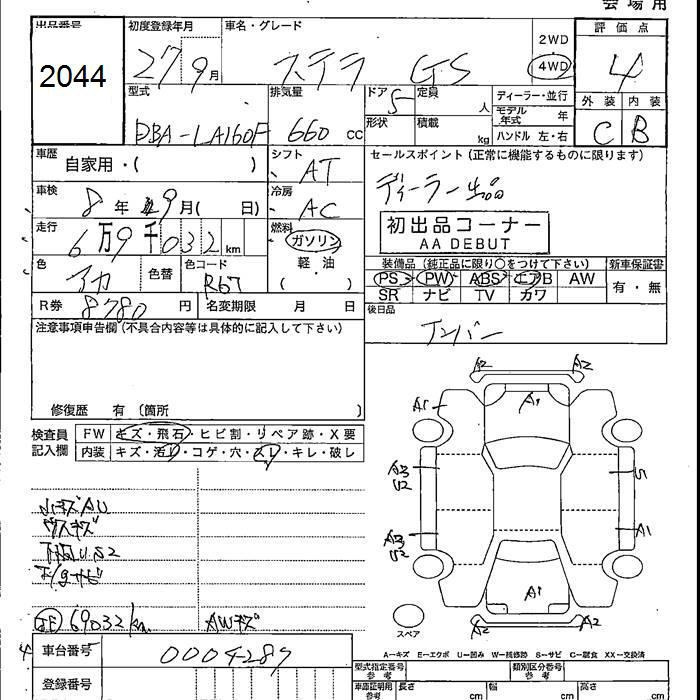 会場用
出品番号 初度登録年月 車名・グレード 評価点
2044 27 9月 ステラ GS 2WD 4WD 4
型式 排気量 ドア 定員 ディーラー・並行 外装 内装
DBA-LA160F 660 cc 5 人 モデル年式 年 C B
形状 積載 kg ハンドル 左・右
車歴 自家用・( ) シフト AT セールスポイント(正常に機能するものに限ります)
車検 8年 9月( 日) 冷房 AC ディーラー出品
初出品コーナー
AA DEBUT
走行 6万9千032km 燃料 ガソリン 軽・油 ( )
色 アカ 色替 色コード R67
装備品(純正品に限り○をつけて下さい) 新車保証書
PS PW ABS エアB AW 有・無
SR ナビ TV カワ
R券 8780円 名変期限 月 日 後日品
注意事項申告欄(不具合内容等は具体的に記入して下さい) ナンバー
修復歴 有 (箇所 )
検査員記入欄 FW キズ・飛石・ヒビ割・リペア跡・X要
内装 キズ・汚レ・コゲ・穴・スレ・キレ・破レ
A2 A2
A1 A1
A3 U2 S
A3 U2 A1
A1
A2 A2
小キズAU
69032km AWキズ
スペア
A-キズ E-エクボ U-凹み W-補修跡 S-サビ C-腐食 XX-交換済
車台番号 0004287
登録番号
型式指定番号 参考 類別区分番号 参考
車庫証明用 参考 長さ cm 幅 cm 高さ cm